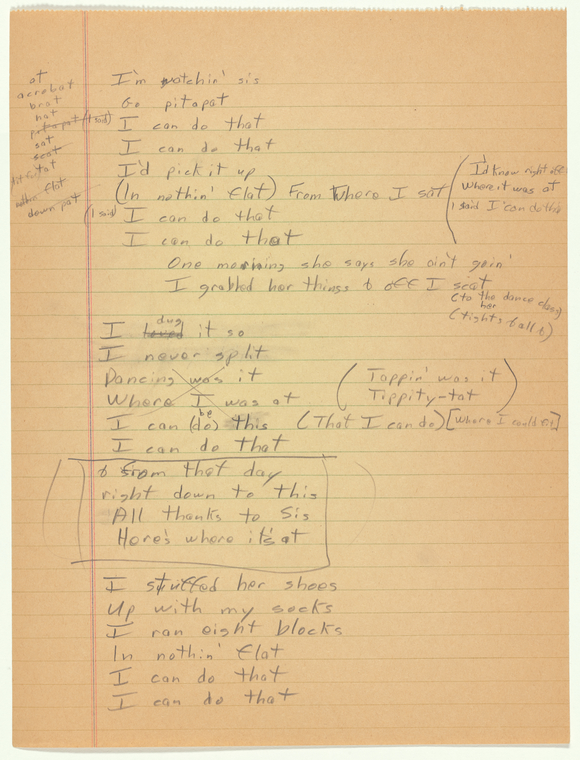 at
acrobat
brat
hat
pitapat (I said)
sat
scat
tat
nothin flat
down pat
I'm watchin' sis
Go pitapat
I can do that
I can do that
I'd pick it up
(In nothin' flat) From Where I sat
(I'd know right off
Where it was at
I said I can do that
(I said) I can do that
I can do that
One morning she says she ain't goin'
I grabbed her things & off I scat
(to the dance class)
her
(tights & all &)
dug
I loved it so
I never split
Dancing was it
Where I was at
(Tappin' was it
Tippity-tat)
be
I can (do) this (That I can do) [Where I could fit]
I can do that
& from that day
right down to this
All thanks to Sis
Here's where it's at
I stuffed her shoes
Up with my socks
I ran eight blocks
In nothin' flat
I can do that
I can do that